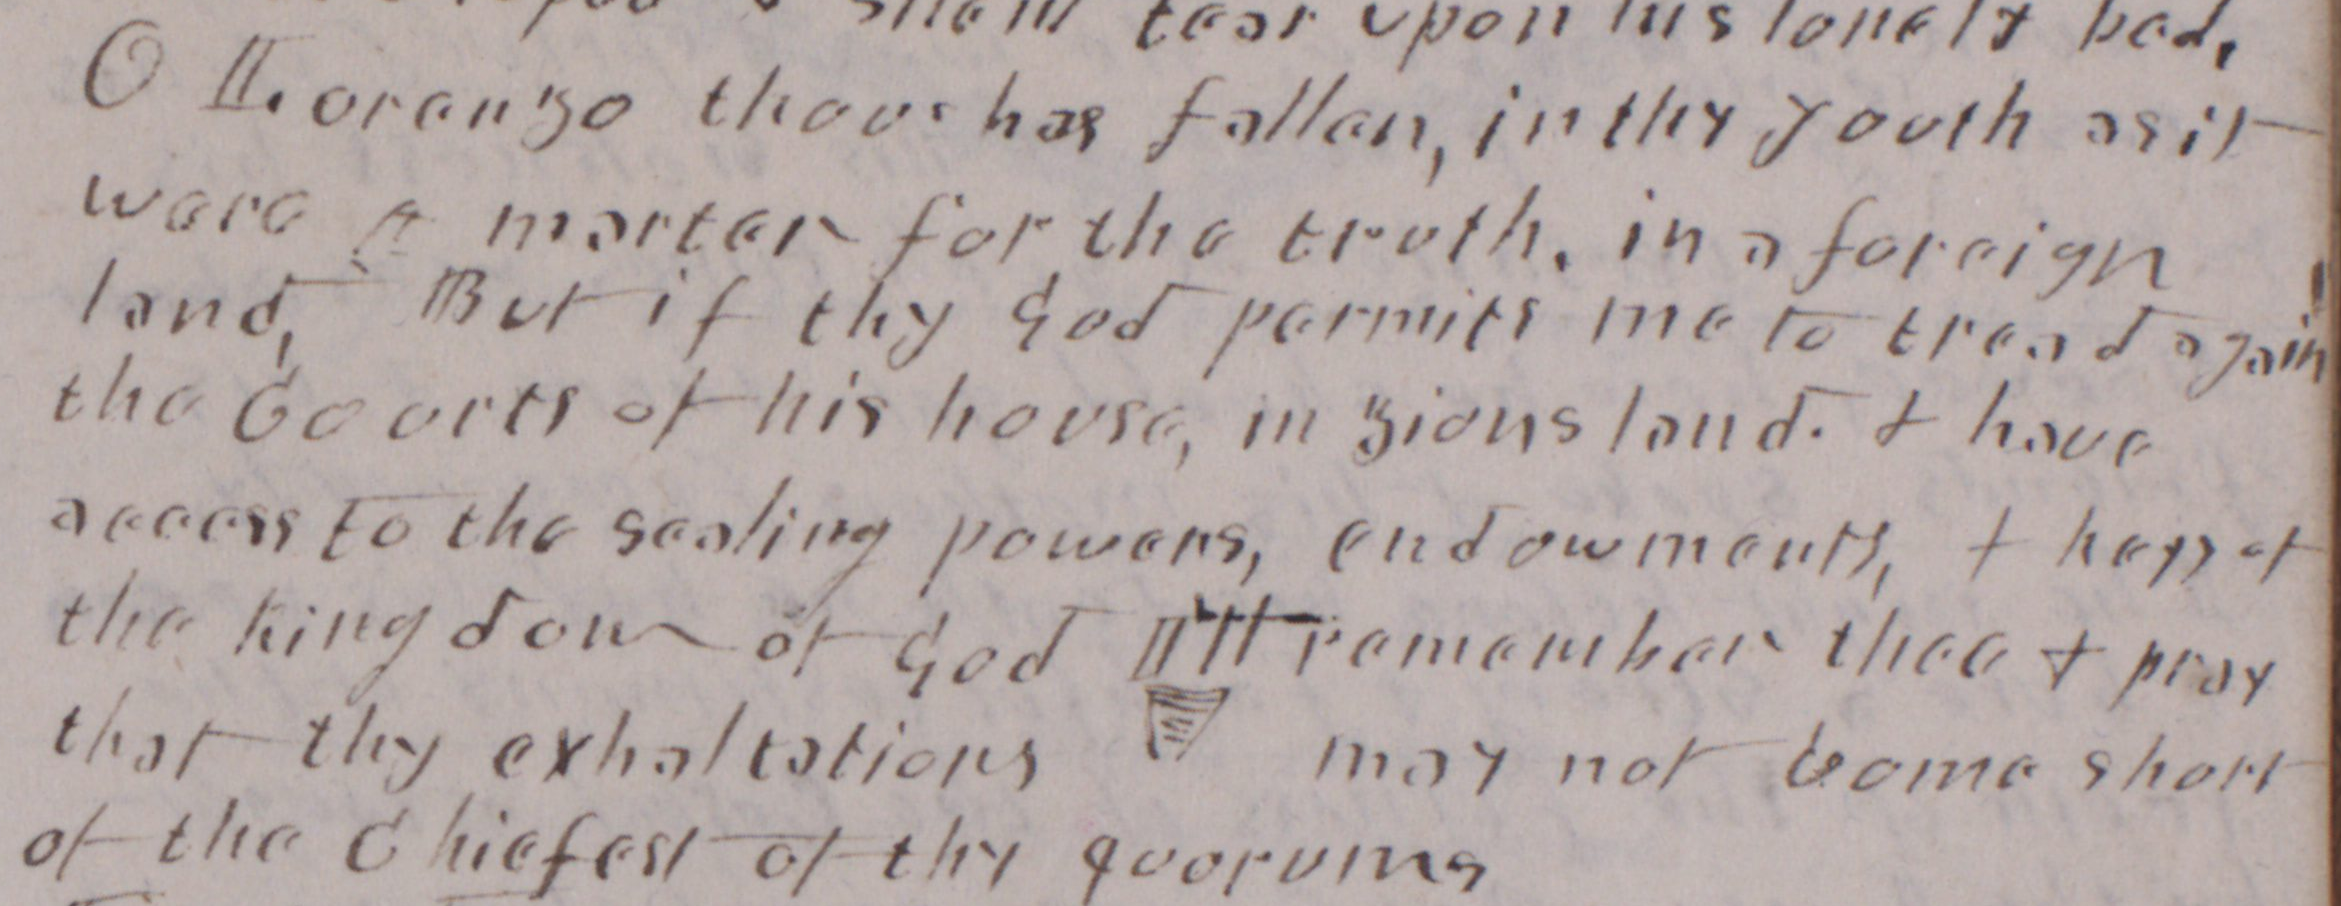 & shed tear upon his lonely bed,
O Lorenzo thou has fallen, in thy youth as it
were a marter for the truth. in a foreign
land, But if thy God permits me to tread again
the Courts of his house, in zions land. & have
access to the sealing powers, endowments, & keys of
the kingdom of God I'll remember thee & pray
that thy exhaltations may not come short
of the Chiefest of thy quorums